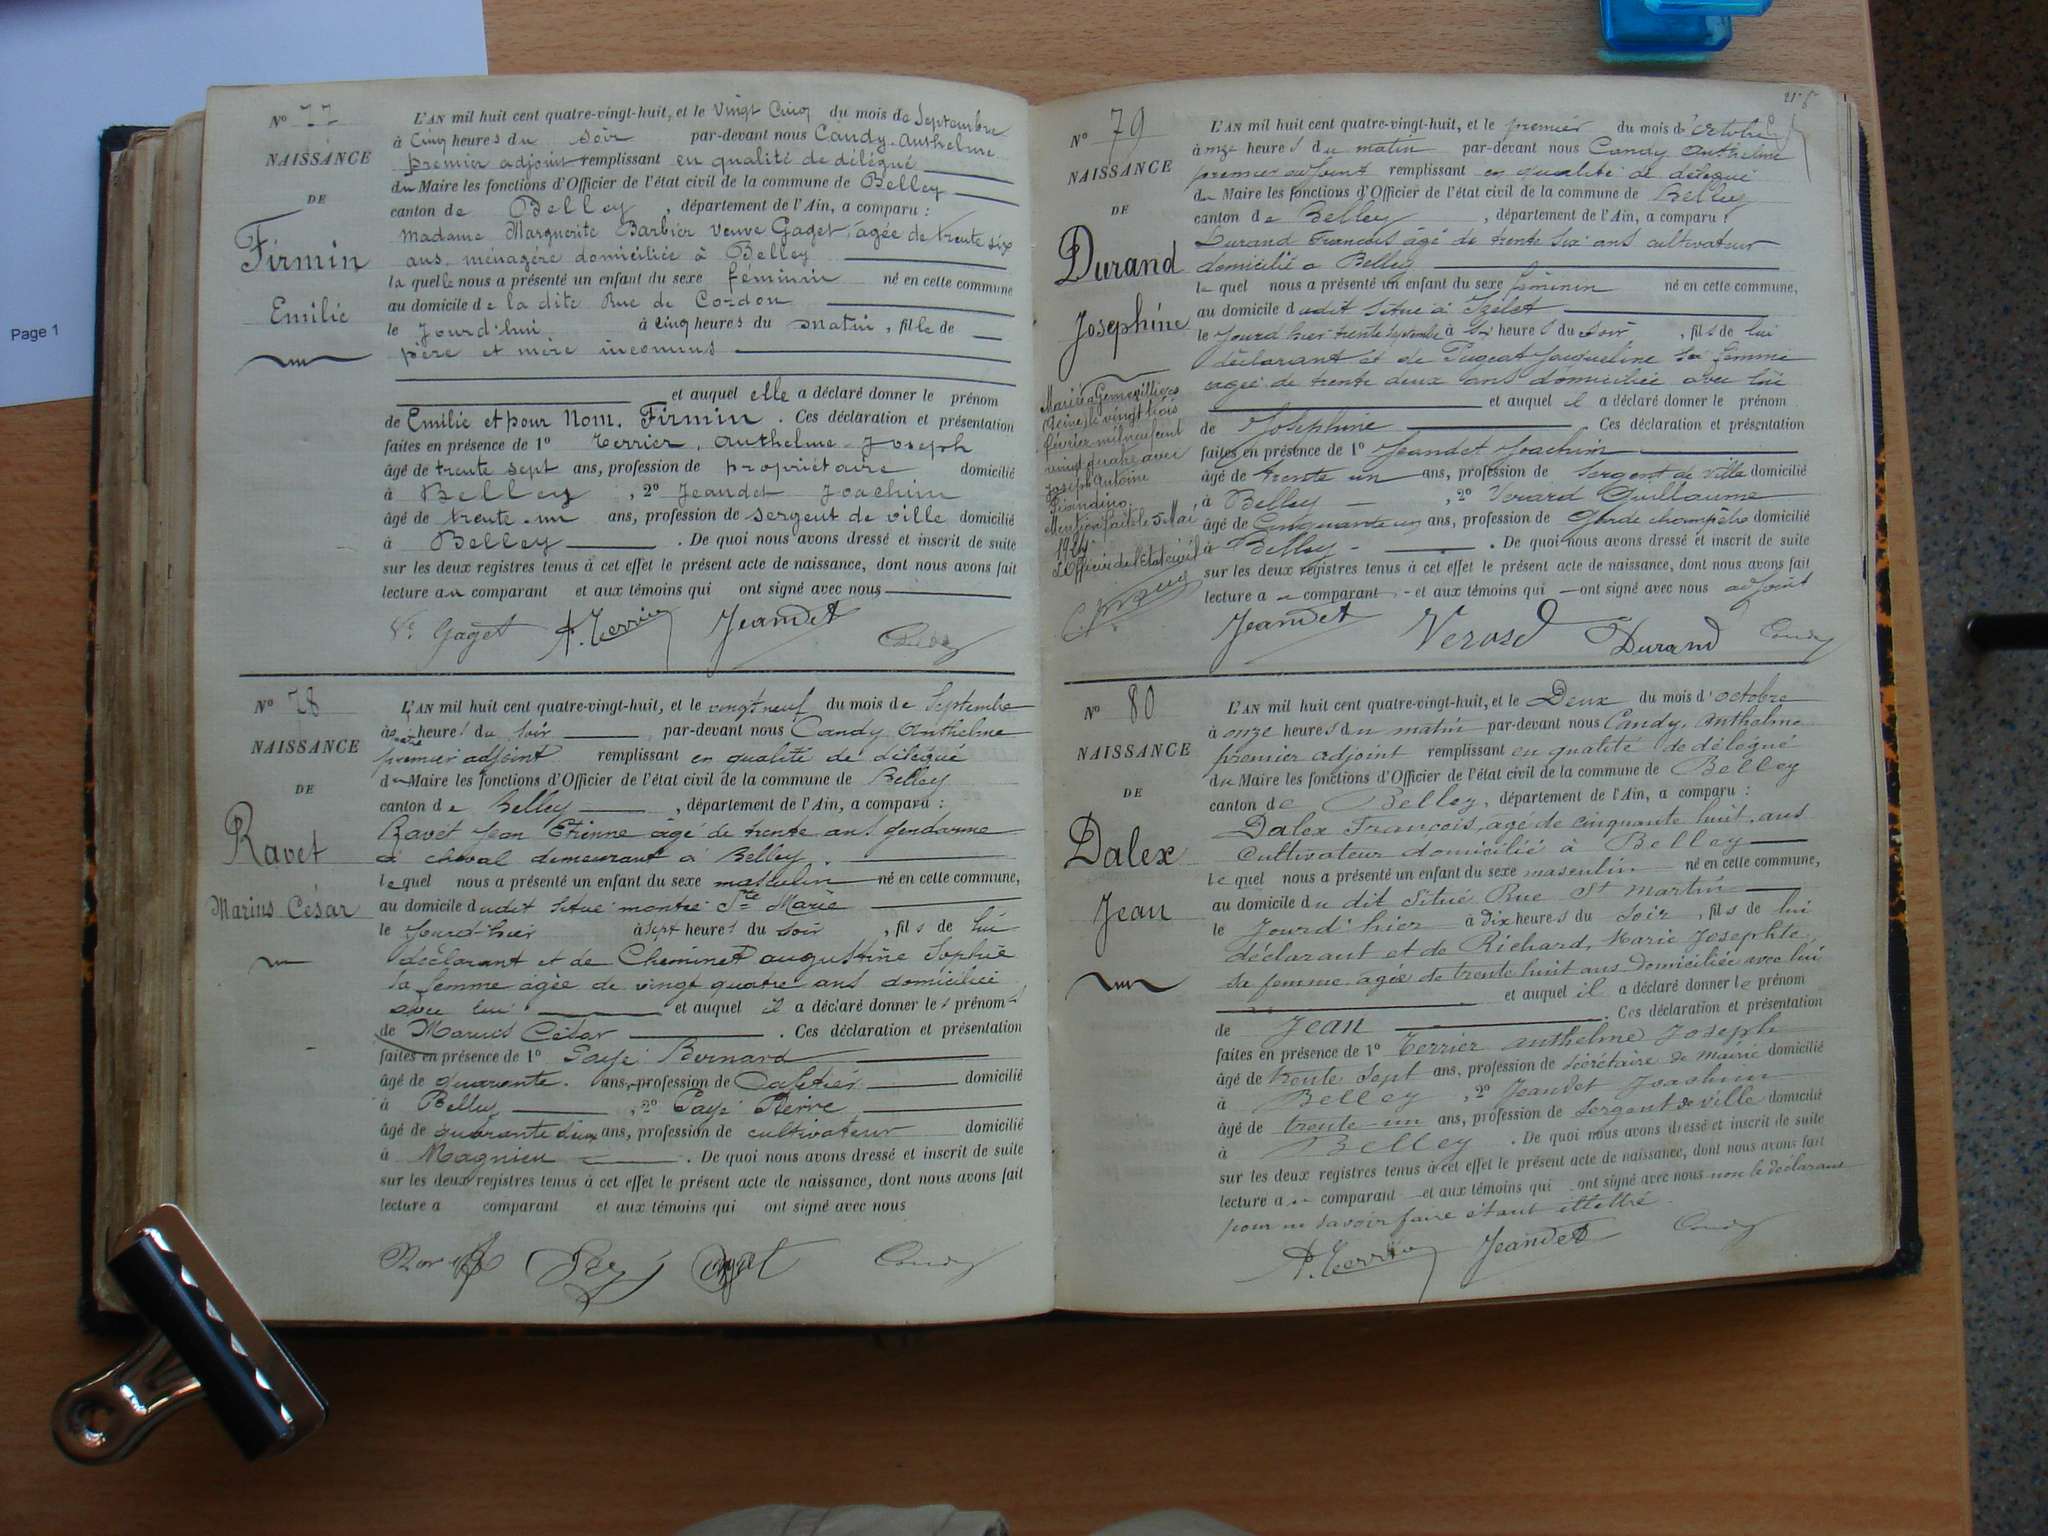 Page 1
Nº 77
NAISSANCE
DE
Firmin
Emilie
L'AN mil huit cent quatre-vingt-huit, et le Vingt Cinq du mois de Septembre
à Cinq heures du soir par-devant nous Candy Anthelme
premier adjoint remplissant en qualité de délégué
du Maire les fonctions d'Officier de l'état civil de la commune de Belley
canton de Belley, département de l'Ain, a comparu :
Madame Marguerite Barbier Veuve Gaget, agée de trente six
ans, ménagère domiciliée à Belley
la quelle nous a présenté un enfant du sexe féminin né en cette commune
au domicile de la dite Rue de Cordon
le Jourd'hui à cinq heures du matin, fille de
père et mère inconnus
et auquel elle a déclaré donner le prénom
de Emilie et pour Nom. Firmin. Ces déclaration et présentation
faites en présence de 1º Terrier, Anthelme-Joseph
âgé de trente sept ans, profession de propriétaire domicilié
à Belley, 2º Jeandet Joachim
âgé de trente-un ans, profession de sergent de ville domicilié
à Belley. De quoi nous avons dressé et inscrit de suite
sur les deux registres tenus à cet effet le présent acte de naissance, dont nous avons fait
lecture au comparant et aux témoins qui ont signé avec nous
Ve Gaget A. Terrier Jeandet Candy
Nº 78
NAISSANCE
DE
Ravet
Marius César
L'AN mil huit cent quatre-vingt-huit, et le vingt neuf du mois de Septembre
à heures du soir par-devant nous Candy Anthelme
premier adjoint remplissant en qualité de délégué
du Maire les fonctions d'Officier de l'état civil de la commune de Belley
canton de Belley, département de l'Ain, a comparu :
Ravet Jean Etienne âgé de trente ans gendarme
à cheval demeurant à Belley.
le quel nous a présenté un enfant du sexe masculin né en cette commune,
au domicile dudit situé montée Ste Marie
le jourd-hier à sept heures du soir, fils de lui
déclarant et de Cheminet augustine Sophie
sa femme âgée de vingt quatre ans domiciliée
avec lui et auquel il a déclaré donner les prénoms
de Marius César. Ces déclaration et présentation
faites en présence de 1º Bernard
âgé de quarante. ans, profession de Cafetier domicilié
à Belley, 2º Pierre
âgé de quarante deux ans, profession de cultivateur domicilié
à Magnieu. De quoi nous avons dressé et inscrit de suite
sur les deux registres tenus à cet effet le présent acte de naissance, dont nous avons fait
lecture a comparant et aux témoins qui ont signé avec nous
Candy
Nº 79
NAISSANCE
DE
Durand
Josephine
Mariée à Gennevilliers
Seine le vingt trois
février mil neuf cent
vingt quatre avec
Joseph Antoine
Mention faite le 5 Mai
1924
L'Officier de l'Etat civil
L'AN mil huit cent quatre-vingt-huit, et le premier du mois d'octobre
à onze heures du matin par-devant nous Candy Anthelme
premier adjoint remplissant en qualité de délégué
du Maire les fonctions d'Officier de l'état civil de la commune de Belley
canton de Belley, département de l'Ain, a comparu :
Durand François âgé de trente six ans cultivateur
domicilié a Belley
le quel nous a présenté un enfant du sexe féminin né en cette commune,
au domicile dudit situé à
le jourd'hier trente septembre à six heures du soir, fils de lui
déclarant et de Pugeat Jacqueline sa femme
agée de trente deux ans domiciliée avec lui
et auquel il a déclaré donner le prénom
de Josephine. Ces déclaration et présentation
faites en présence de 1º Jeandet Joachim
âgé de trente un ans, profession de sergent de ville domicilié
à Belley, 2º Verard Guillaume
âgé de Cinquante un ans, profession de Garde champêtre domicilié
à Belley. De quoi nous avons dressé et inscrit de suite
sur les deux registres tenus à cet effet le présent acte de naissance, dont nous avons fait
lecture a comparant et aux témoins qui ont signé avec nous adjoint
Jeandet Durand Candy
Nº 80
NAISSANCE
DE
Dalex
Jean
L'AN mil huit cent quatre-vingt-huit, et le Deux du mois d'octobre
à onze heures du matin par-devant nous Candy, Anthelme
premier adjoint remplissant en qualité de délégué
du Maire les fonctions d'Officier de l'état civil de la commune de Belley
canton de Belley, département de l'Ain, a comparu :
Dalex François, agé de cinquante huit ans
Cultivateur domicilié à Belley
le quel nous a présenté un enfant du sexe masculin né en cette commune,
au domicile du dit situé Rue St Martin
le Jourd'hier à dix heures du soir, fils de lui
déclarant et de Richard, Marie Josephte,
sa femme agée de trente huit ans domiciliée avec lui
et auquel il a déclaré donner le prénom
de Jean. Ces déclaration et présentation
faites en présence de 1º Terrier anthelme Joseph
âgé de trente sept ans, profession de secrétaire de mairie domicilié
à Belley, 2º Jeandet Joachim
âgé de trente-un ans, profession de sergent de ville domicilié
à Belley. De quoi nous avons dressé et inscrit de suite
sur les deux registres tenus à cet effet le présent acte de naissance, dont nous avons fait
lecture au comparant et aux témoins qui ont signé avec nous non le déclarant
pour ne savoir faire étant illettré
A. Terrier Jeandet Candy